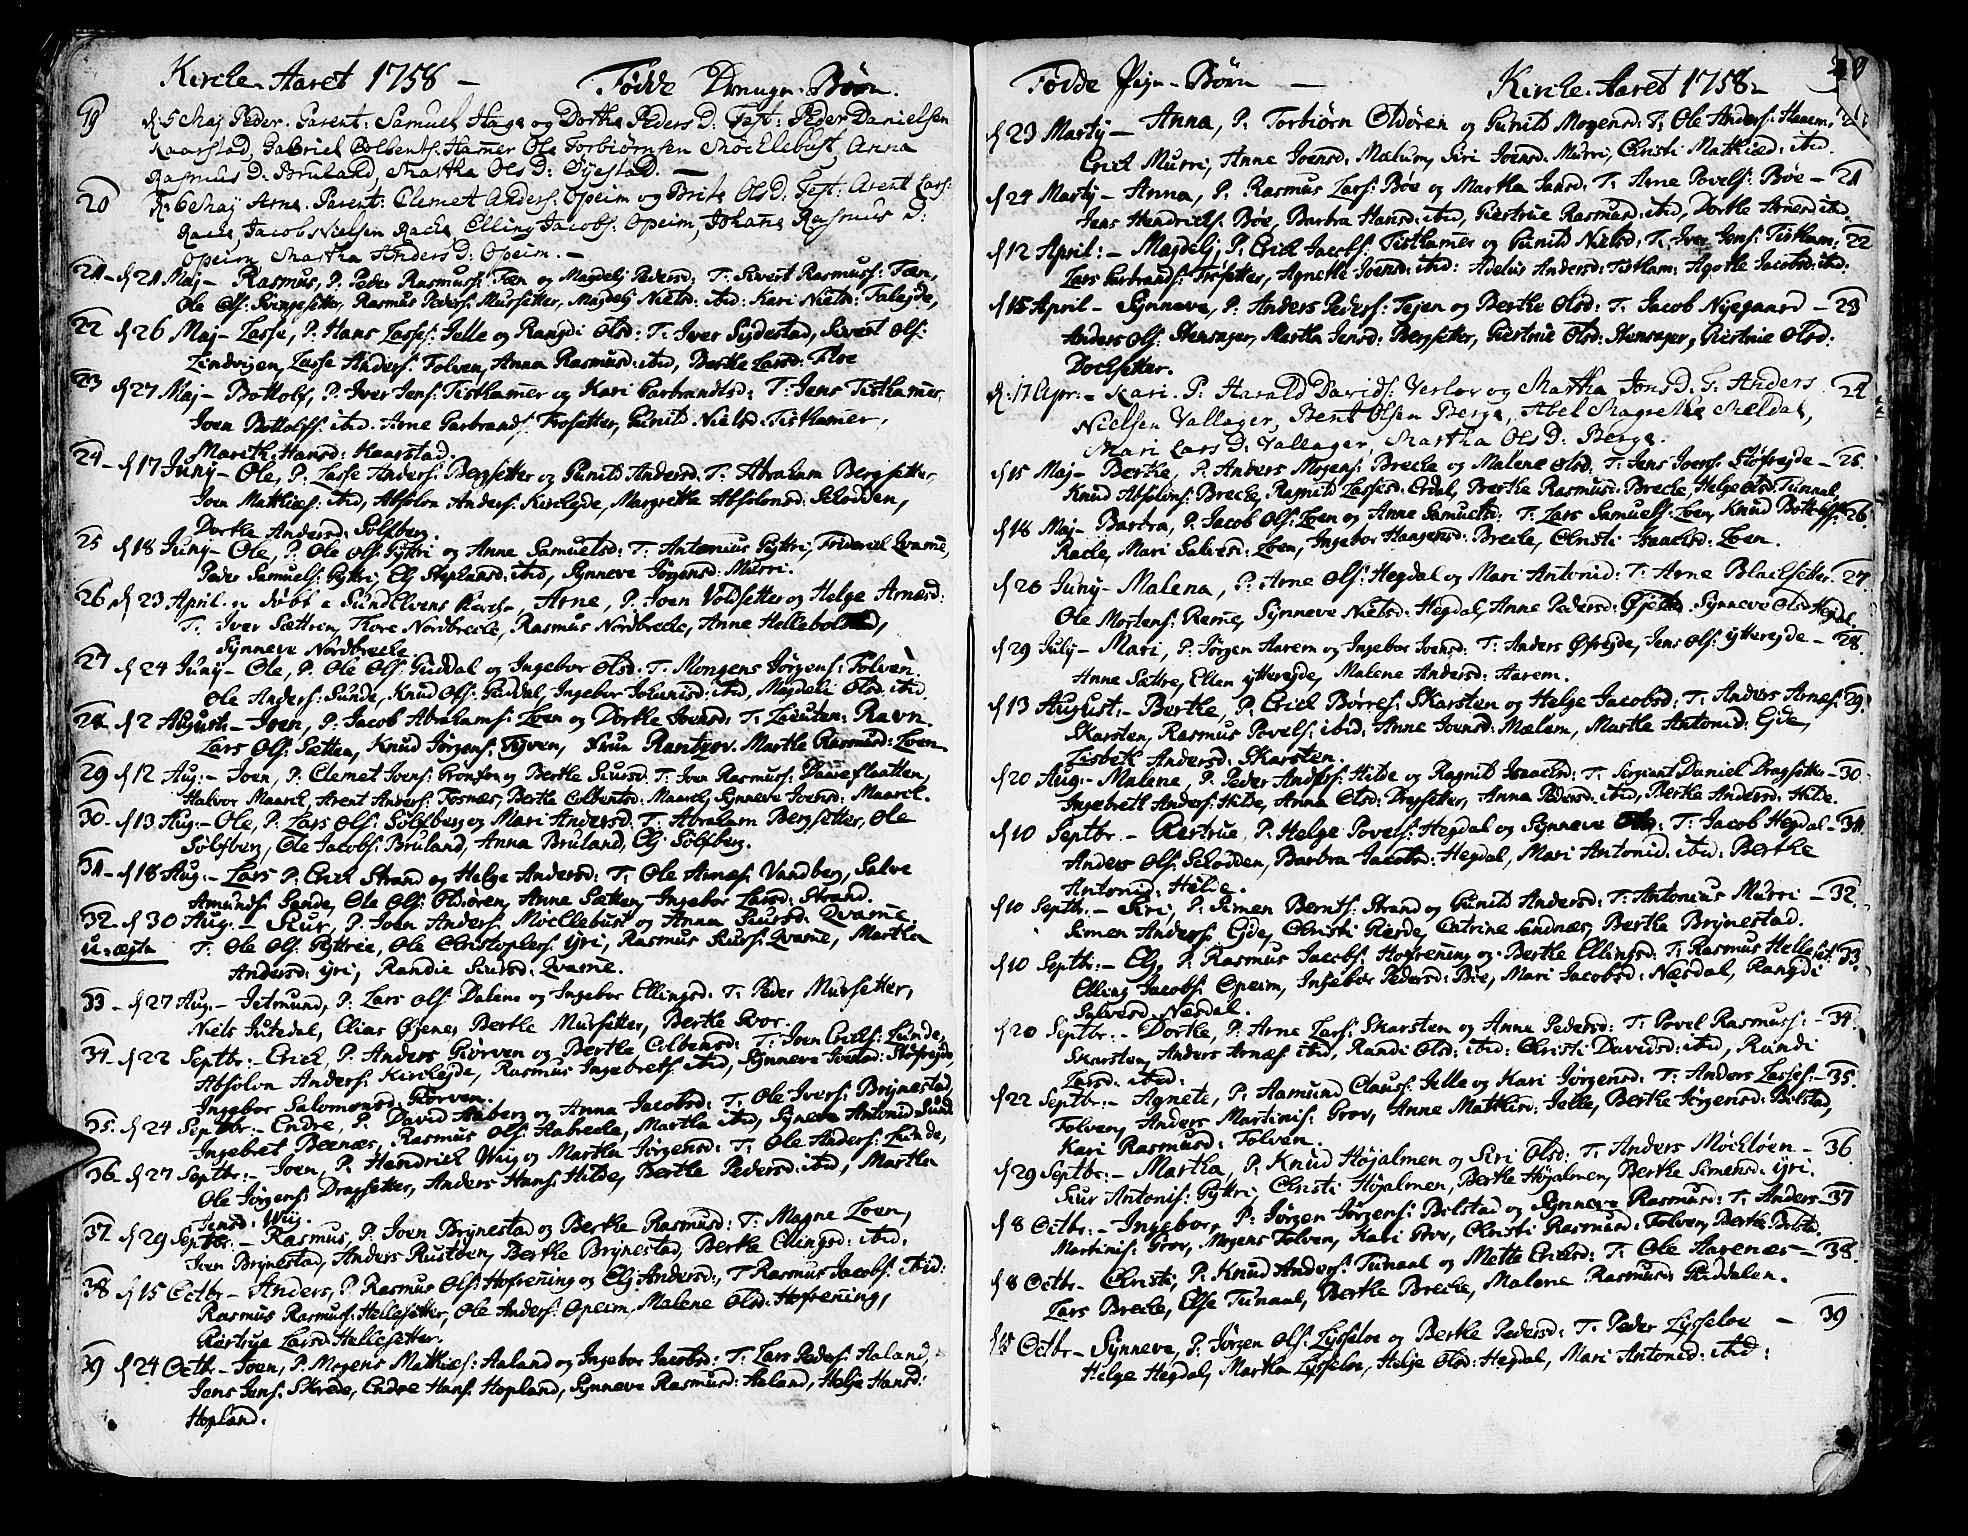 Kirche-Aaret 1758 – Fødde Drenge-Børn.
19 d. 5 Maj Peder. Parent: Samuel Hage og Dorthe Peders D: Test: Peder Danielsen
Kaarstad, Gabriel Colbents: Hammer Ole Torbiørnsen Mochlebust, Anna
Rasmus D: Bruland, Martha Ols D: Øyestad. –
20 d. 6 Maj Arne. Parent: Clemet Anders: Opeim og Brite Ols D. Test. Arent Lars:
Rache, Jacob Nielsen Rache Elling Jacobs: Opeim, Johanne Rasmus D:
Opeim Martha Anders D: Opeim. –
21 – d 21 Maj – Rasmus, P: Peder Rasmus: Tæn og Magdeli Pedersd: T: Sivert Rasmuss: Tæn,
Ole Ols: Svingesetter, Rasmus Peders: Mursetter, Magdeli Nielsd: ibid: Kari Nielsd: Falejde,
22 d 26 Maj – Lasse, P: Hans Lasses: Jelle og Rangdi Olsd: T: Iver Sydestad, Sivert Ols:
Lindvigen, Lasse Anders: Folven, Anna Rasmusd: ibid, Berthe Larsd: Flore
23 d 27 Maj – Bottolf, P: Iver Jens: Tisthamer og Kari Garbrandtsd: T: Jens Tisthamer,
Joen Bottolfs: ibid. Arne Garbrands: Frosetter, Gunild Nielsd: Tisthamer,
Marith Hansd: Kaarstad.
24 – d 17 Juny – Ole, P: Lasse Anders: Bergsetter og Gunild Andersd: T: Abraham Bergsetter,
Joen Mathies: ibid, Absolon Anders: Kirchejde, Margrethe Absolonsd: Schodden,
Dorthe Andersd: Solfberg.
25 d 18 Juny – Ole, P: Ole Ols: Gyttri og Anne Samuelsd: T: Antonius Gyttri, Friderich Qvame,
Peder Samuels: Gyttri, Elj Stephansd: ibid, Synneve Jørgensd: Murri.
26, d 23 April er døbt i SundElvens Kirche, Arne, P: Joen Voldsetter og Helge Arnesd:
T: Iver Sættren, Tore Nordbrecke, Rasmus Nordbrecke, Anne Hellebolstad,
Synneve Nordbrecke.
27 d 24 Juny – Ole, P: Ole Ols: Guddal og Ingebor Olsd: T: Mongens Jørgens: Folven
Ole Anders: Sunde, Knud Ols: Guddal, Ingebor Johanisd: ibid, Magdeli Olsd: ibid.
28 – d 2 August: – Joen, P: Jacob Abrahams: Loen og Dorthe Joensd: T: Lieuten: Ravn.
Lars Ols: Sætten, Knud Jørgens: Tyven, Frun Rantzov. Marthe Rasmusd: Loen
29 d 12 Aug: – Joen, P: Clemet Joens: Gronfor og Berthe Siursd: T: Iver Rasmuss: Daaveflaatten,
Halvor Maarch, Arent Anders: Fosnæs, Berthe Colbentsd: Maarch, Synneve Joensd: Maarck.
30 – d 13 Aug: – Ole, P: Lars Ols: Solfberg og Mari Andersd: T: Abraham Bergsetter, Ole
Solfberg, Ole Jacobs: Bruland, Anna Bruland, Elj Solfberg.
31 – d 18 Aug: – Lars P: Erich Strand og Helge Andersd: T: Ole Arnes: Vandberg, Salve
Amunds: Sande, Ole Ols: Oldøren, Anne Sætten, Ingebor Larsd: Strand.
32. d. 30 Aug. – Siur, P: Joen Anders: Mochlebust og Anna Siursd: Qvame,
U-ægta T: Ole Ols: Gyttrie, Ole Christophers: Yri, Rasmus Siurs: Qvame, Martha
Andersd: Yri, Randie Siursd: Qvame.
33 – d 27 Aug – Jetmund, P: Lars Ols: Dalene og Ingebor Ellingsd: T: Peder Mursetter,
Niels Jutedal, Elias Øjene, Berthe Mursetter, Berthe Qvor.
34. – d 22 Septbr: – Erich, P: Anders Giørven og Berthe Colbensd: T: Joen Erichs: Lunde,
Absolon Anders: Kirchejde, Rasmus Ingebrets: ibid, Synneve Joensd: Stofrejde,
Ingebor Salomonsd: Giørven.
35. d 24 Septbr: – Endre, P: David Aaberg og Anna Jacobsd: T: Ole Ivers: Brynestad,
Ingebret Beenæs, Rasmus Ols: Aabrecke, Martha ibid, Synneve Antonid: Sund
36 – d 27 Septbr: – Joen, P: Hendrich Wiig og Martha Jørgensd: T: Ole Anders: Lunde,
Ole Jørgens: Dragsetter, Anders Hans: Hilde, Berthe Pedersd: ibid, Martha
Jensd: Wiig.
37 d 29 Septbr: – Rasmus, P: Joen Brynestad og Berthe Rasmusd: T: Magne Loen,
Iver Brynestad, Anders Rustøen, Berthe Brynestad, Berthe Ellingsd: ibid.
38 d 15 Octbr – Anders, P: Rasmus Ols: Hofrening og Elj Andersd: T: Rasmus Jacobs: ibid:
Rasmus Rasmus: Hellesetter, Ole Anders: Opeim, Malene Olsd: Hofrening,
Giertrue Larsd: Hellesetter.
39 d 24 Octb – Joen, P: Mogens Mathies: Aaland og Ingebor Jacobsd: T: Lars Peders: Aaland,
Jens Jens: Skrede, Endre Hans: Hopland, Synneve Rasmusd: Aaland, Helje Hansd:
Hopland.
Fødde Pige-Børn – Kirche-Aaret 1758 –
d 23 Martij – Anna, P: Torbiørn Oldøren og Gunild Mogensd: T: Ole Anders: Harem,
Erich Murri, Anne Joensd: Mælum, Siri Joensd: Murri, Christi Mathiæd: ibid.
d 24 Martij – Anna, P: Rasmus Lars: Bøe og Martha Jansd: T: Arne Povels: Bøe – 21
Jens Hendrichs: Bøe, Barbra Hansd: ibid, Giertrue Rasmusd: ibid, Dorthe Arnesd: ibid.
d 12 April: – Magdelj, P: Erich Jacobs: Tisthamer og Gunild Nielsd: T: Iver Jens: Tistham: – 22
Lars Garbrands: Frosetter, Agnethe Joensd: ibid: Adelus Andersd: Tistham: Agothe Jacobsd: ibid:
d 15 April – Synneve, P: Anders Peders: Tejen og Berthe Olsd: T: Jacob Nyegaard – 23
Anders Ols: Stensager, Martha Jensd: Bergsetter, Giertrue Olsd: Stensager, Giertrue Olsd:
Dochsetter.
d. 17 Apr: – Kari. P: Harald Davids: Verlov og Martha Jons D: T: Anders – 24
Nielsen Vallager, Bent Olsen Berge, Abel Magrethe Mældal,
Mari Lars D: Vallager, Martha Ols D: Berge.
d 15 Maj – Berthe, P: Anders Mogens: Brecke og Malene Olsd: T: Jens Joens: Stofrejde – 25.
Knud Absolons: Brecke, Ragnild Lassesd: Erdal, Berthe Rasmusd: Brecke, Helge Olsd: Tunaal,
d 18 Maj – Barbra, P: Jacob Ols: Loen og Anne Samuelsd: T: Lars Samuels: Loen, Knud Bottolfs: 26.
Rache, Mari Salvesd: Loen, Ingebor Haagensd: Brecke, Christi Isaachsd: Loen.
d 26 Juny – Malena, P: Arne Ols: Hegdal og Mari Antonid: T: Arne Blachsetter. 27.
Ole Mortens: Reme, Synneve Nielsd: Hegdal, Anne Pedersd: Øjelid. Synneve Olsd Hegdal.
d 29 July – Mari, P: Jørgen Aarem og Ingebor Joensd: T: Anders Øfrejde, Jens Ols: ytterejde – 28.
Anne Sættre, Ellen ytterejde, Malene Andersd: Aarem.
d 13 August: – Berthe, P: Erich Børres: Skarsten og Helge Jacobsd: T: Anders Arnes: 29.
Skarsten, Rasmus Povels: ibid: Anne Joensd: Mælem, Marthe Antonid: Ejde,
Lisbeth Andersd: Skarsten.
d 20 Aug: – Malene, P: Peder Anders: Hilde og Ragnild Isaachsd: T: Sergiant Daniel Dragsetter – 30.
Ingebrett Anders: Hilde, Anna Olsd: Dragsetter, Anna Pedersd: ibid, Berthe Andersd: Hilde.
d 10 Septbr. – Giertrue, P: Helge Povels: Hegdal og Synneve Olsd: T: Jacob Hegdal – 31.
Anders Ols: Schodden, Barbra Jacobsd: Hegdal, Mari Antonid: ibid: Berthe
Antonid: Hilde.
d 10 Septbr. – Siri, P: Simen Bernts: Strand og Gunild Andersd: T: Antonius Murri – 32.
Simen Anders: Ejde, Christi Gierde, Catrine Sandnæs, Berthe Brynestad.
d 10 Septbr: – Elj, P: Rasmus Jacobs: Hofrening og Berthe Ellingsd: T: Rasmus Helleset. 33.
Elling Jacobs: Opeim, Ingebor Pedersd: Bøe, Mari Jacobsd: Næsdal, Rangdi
Salvesd: Næsdal.
d 20 Septbr: – Dorthe, P: Arne Lars: Skarsten og Anne Pedersd: T: Povel Rasmus: – 34.
Skarsten, Anders Arnæs: ibid, Randi Olsd: ibid: Christi Davidsd: ibid, Randi
Larsd: ibid:
d 22 Septbr: – Agnete, P: Aamund Claus: Jelle og Kari Jørgensd: T: Anders Lasses: – 35.
Folven, Anders Martinis: Grov, Anne Mathisd: Jelle, Berthe Jørgensd: Bolstad,
Kari Rasmusd: Folven.
d 29 Septbr: – Martha, P: Knud Højalmen og Siri Olsd: T: Anders Mochløen – 36.
Siur Antonis: Gyttri, Christi Højalmen, Berthe Højalmen, Berthe Simensd: Yri.
d 8 Octbr: – Ingebor, P: Jørgen Jørgens: Bolstad og Synneve Rasmusd: T: Anders – 37
Martinis: Grov, Mogens Folven, Kari Grov, Christi Rasmusd: Folven, Berthe Bolstad.
d 8 Octbr – Christi, P: Knud Anders: Tunaal og Mette Erichsd: T: Ole Aarenæs – 38.
Lars Brecke, Else Tunaal, Berthe Brecke, Malene Rasmusd: Guddalen.
d 15 Octbr – Synneve, P: Jørgen Ols: Lysseloe og Berthe Pedersd: T: Peder Lysseloe – 39
Helge Hegdal, Martha Lysseloe, Helje Olsd: Hegdal, Mari Antonid: ibid: